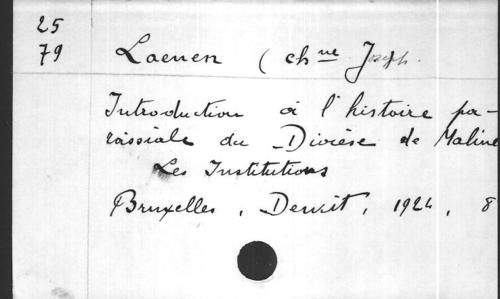 25
79 Laenen (chne Joseph.
Introduction à l'histoire pa-
roissiale du Diocèse de Maline
Les Institutions
Bruxelles, Dewit, 1924, 8